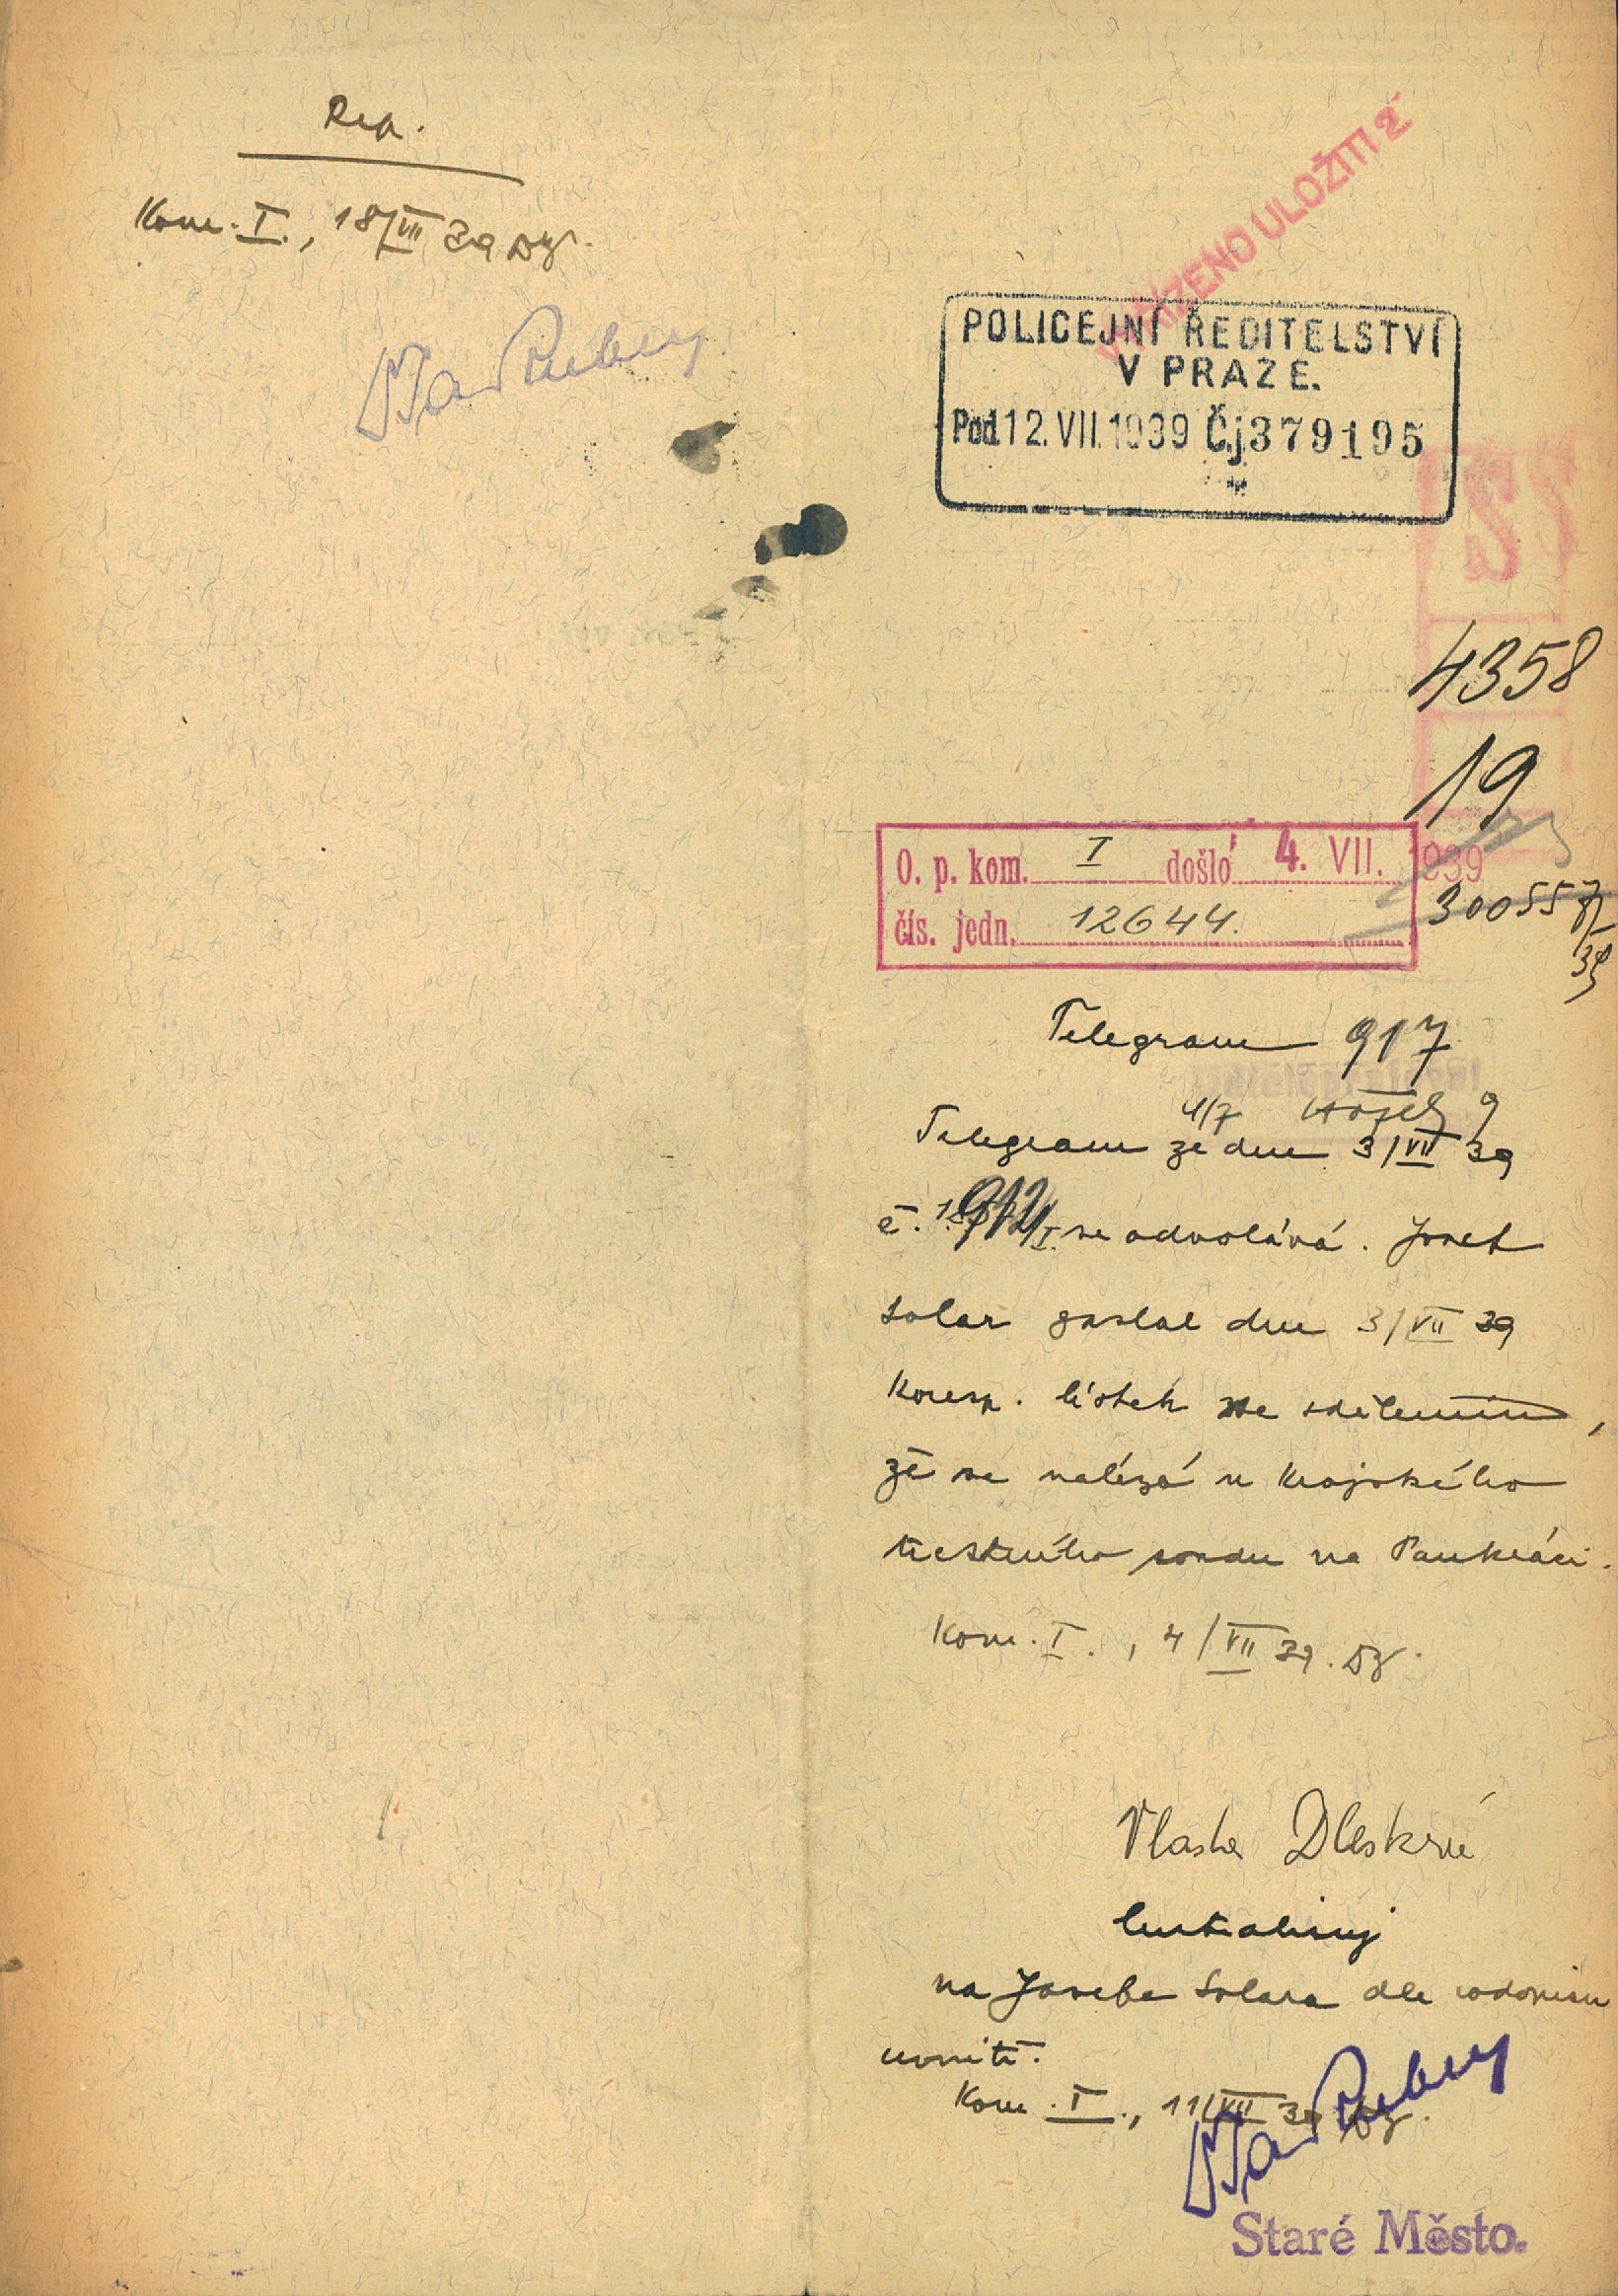 Rep.
Kom. I., 18/VII 39 Dý.
VYŘÍZENO ULOŽITI 2
POLICEJNÍ ŘEDITELSTVÍ
V PRAZE.
Pod. 12. VII. 1939 Č.j. 379195
4358
19
O. p. kom. I došlo 4. VII. 1939
čís. jedn. 12644.
30055
39
Telegram 917
4/7 9
Telegram ze dne 3/VII 39
č. 912/I se odvolává. Josef
Solar zaslal dne 3/VII 39
koresp. lístek se sdělením,
že se nalézá u krajského
trestního soudu na Pankráci.
Kom. I., 4/VII 39. Dý.
Vlasta Dleskové
na Josefa Solara dle
uvnitř.
Kom. I., 11/VII 39 Dý.
Staré Město.